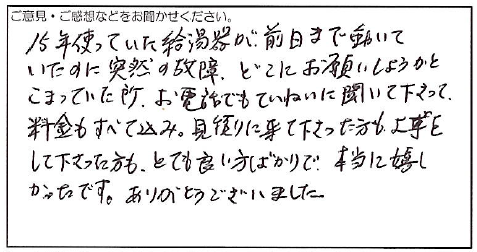 ご意見・ご感想などをお聞かせください。
15年使っていた給湯器が、前日まで動いて
いたのに突然の故障、どこにお願いしようかと
こまっていた所、お電話でもていねいに聞いて下さって、
料金もすべて込み。見積りに来て下さった方も、工事を
して下さった方も、とても良い方ばかりで、本当に嬉し
かったです。ありがとうございました